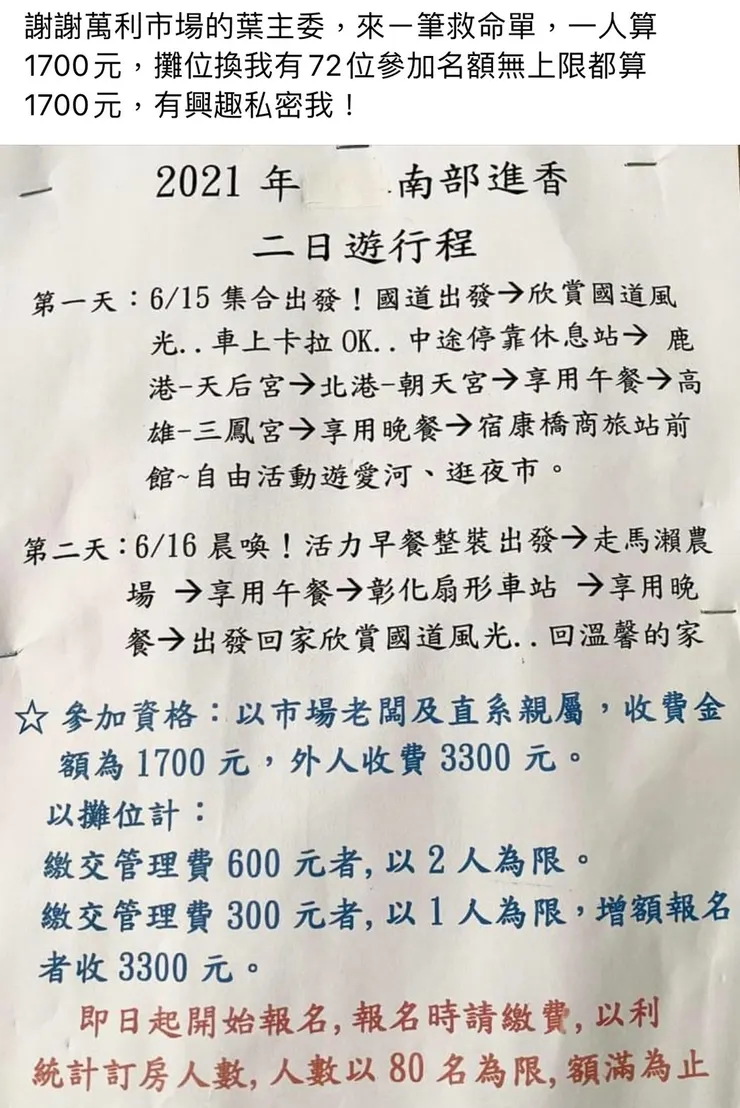 謝謝萬利市場的葉主委，來一筆救命單，一人算
1700元，攤位換我有72位參加名額無上限都算
1700元，有興趣私密我！
2021 年 南部進香
二日遊行程
第一天：6/15 集合出發！國道出發→欣賞國道風
光..車上卡拉 OK..中途停靠休息站→ 鹿
港-天后宮→北港-朝天宮→享用午餐→高
雄-三鳳宮→享用晚餐→宿康橋商旅站前
館~自由活動遊愛河、逛夜市。
第二天：6/16 晨喚！活力早餐整裝出發→走馬瀨農
場 →享用午餐→彰化扇形車站 →享用晚
餐→出發回家欣賞國道風光..回溫馨的家
☆ 參加資格：以市場老闆及直系親屬，收費金
額為 1700 元，外人收費 3300 元。
以攤位計：
繳交管理費 600 元者,以 2 人為限。
繳交管理費 300 元者,以 1 人為限，增額報名
者收 3300 元。
即日起開始報名,報名時請繳費,以利
統計訂房人數,人數以 80 名為限,額滿為止